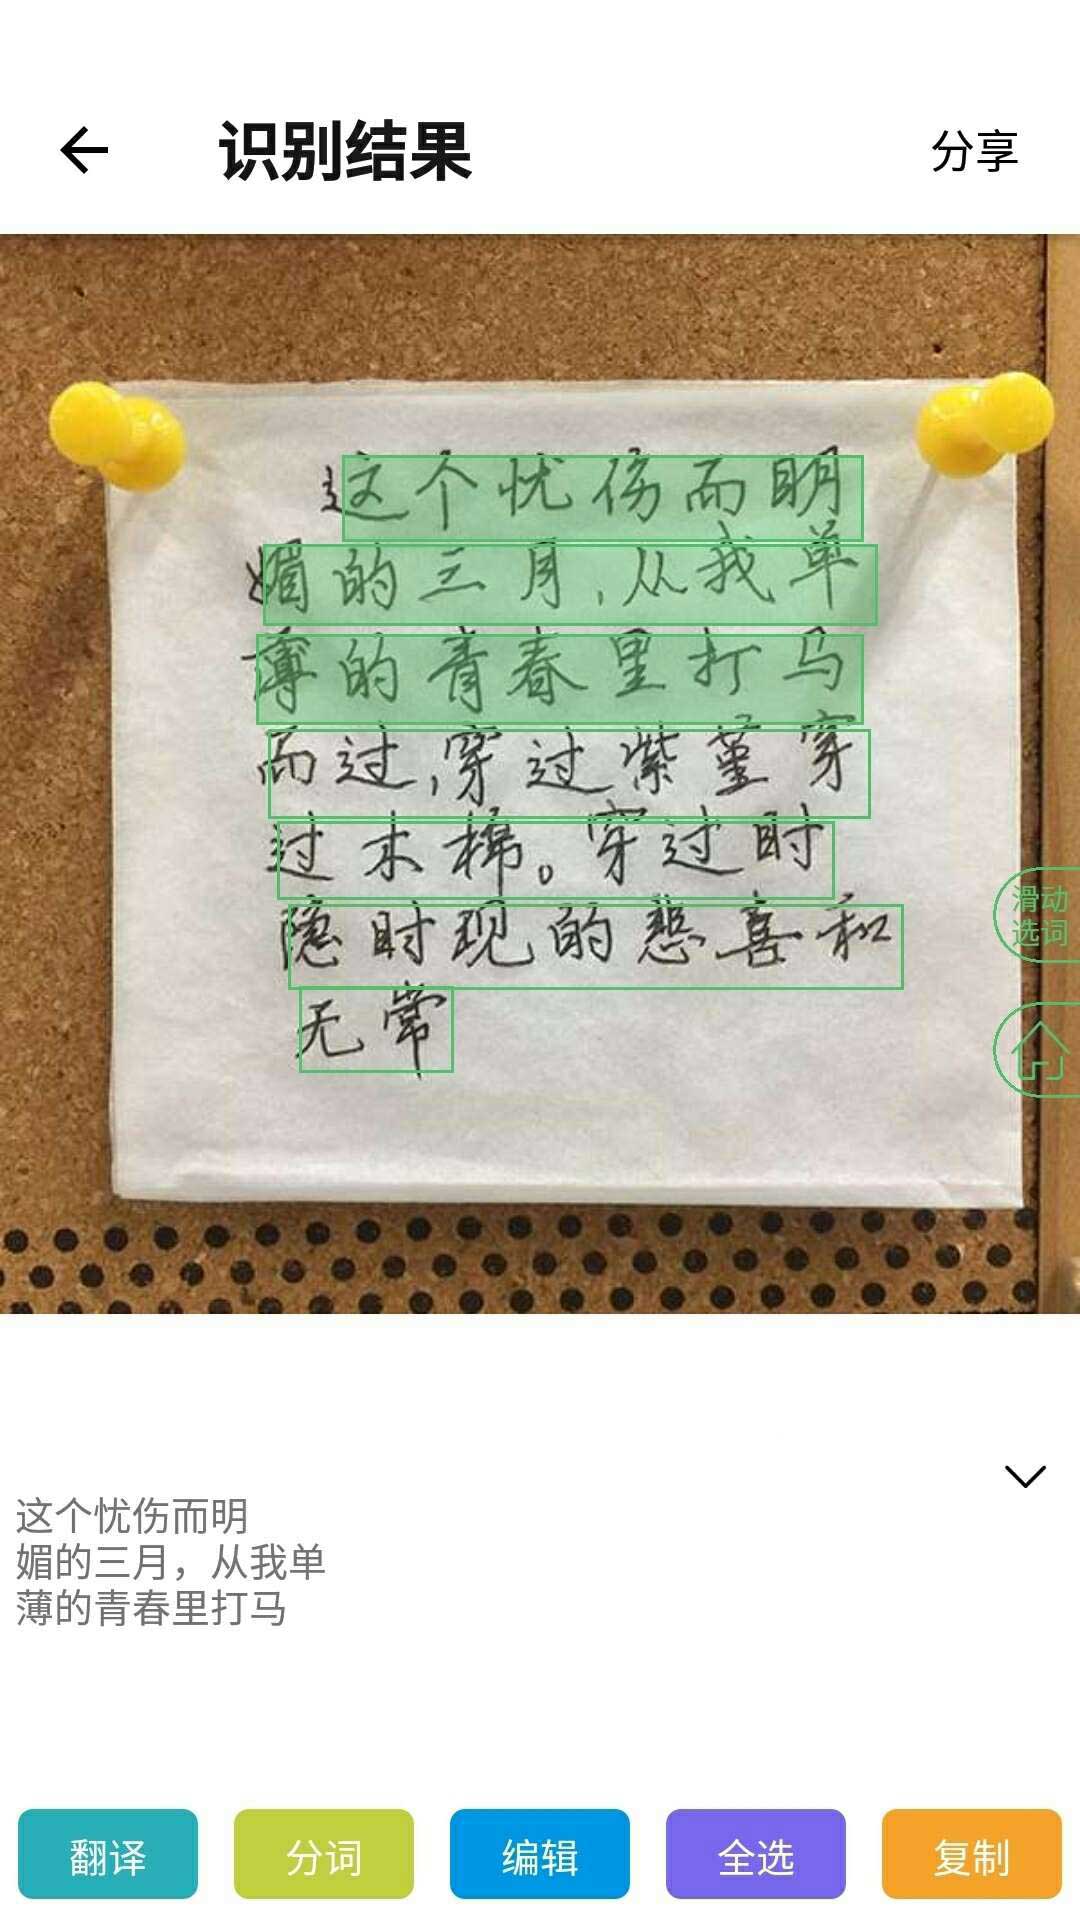 识别结果
分享
这个忧伤而明
媚的三月,从我单
薄的青春里打马
而过,穿过紫堇穿
过木棉。穿过时
隐时现的悲喜和
无常
滑动
选词
这个忧伤而明
媚的三月，从我单
薄的青春里打马
翻译
分词
编辑
全选
复制